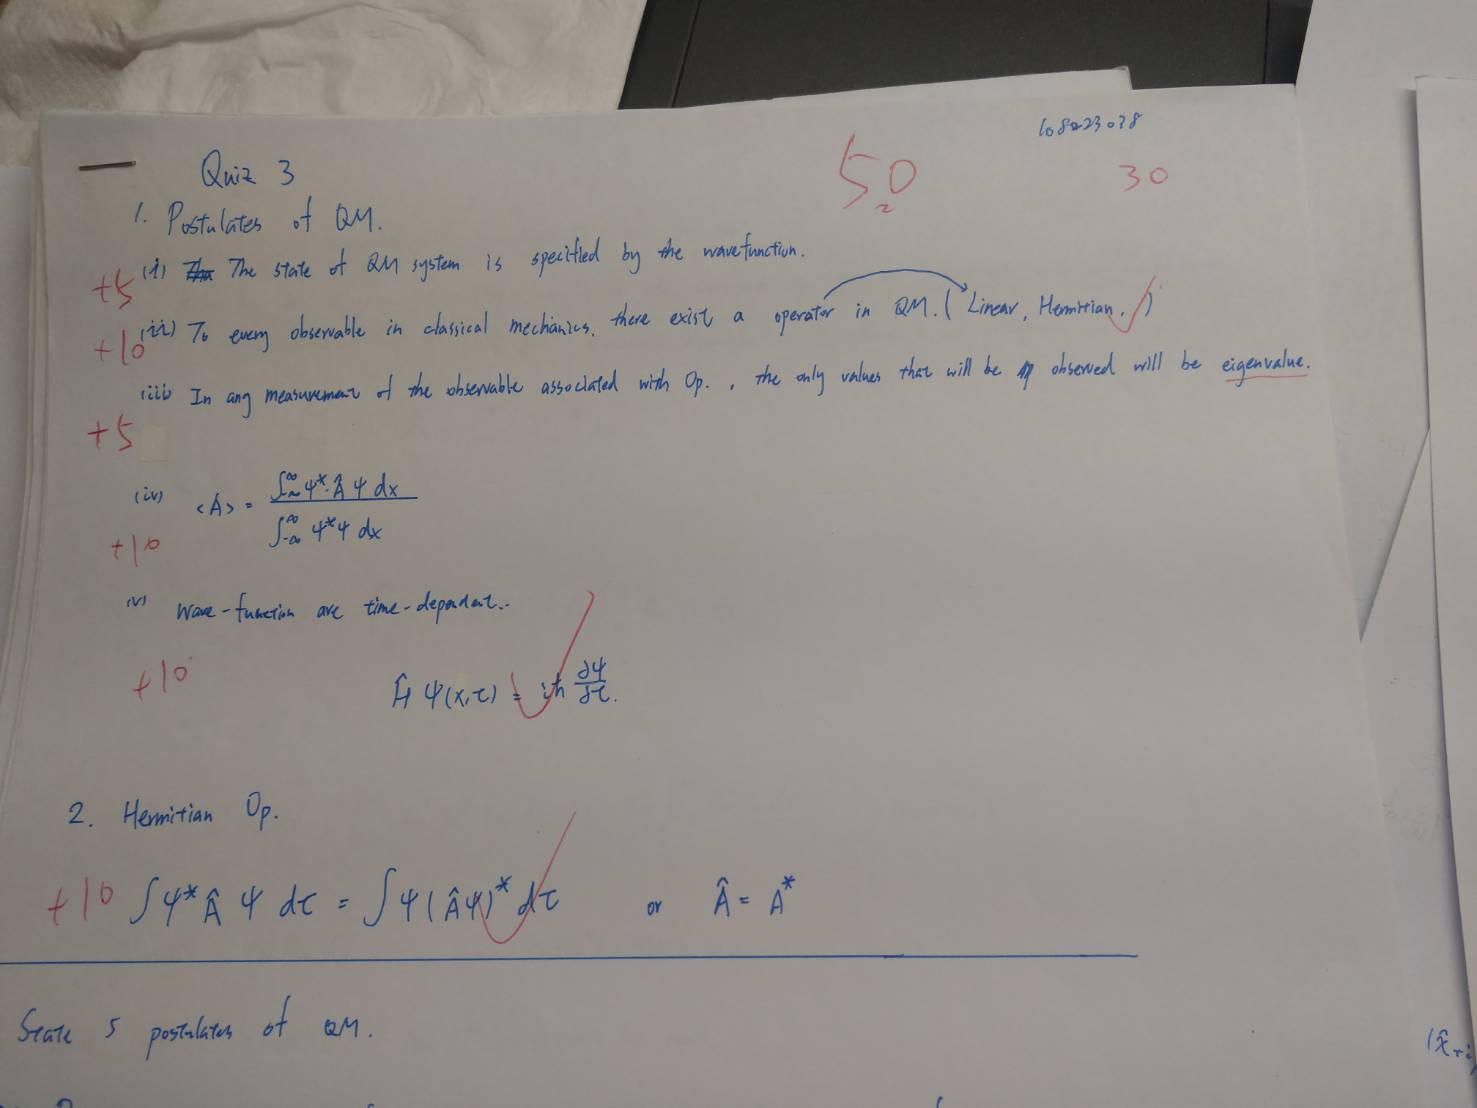 108223038
Quiz 3
50
30
1. Postulates of QM.
+5 (i) The state of QM system is specified by the wavefunction.
+10 (ii) To every observable in classical mechanics, there exist a operator in QM. (Linear, Hermitian, )
+5 (iii) In any measurement of the observable associated with Op., the only values that will be observed will be eigenvalue.
(iv) <Â> = ∫_{-∞}^{∞} ψ* Â ψ dx / ∫_{-∞}^{∞} ψ*ψ dx
+10
(v) Wave-function are time-dependent..
+10 Ĥ ψ(x,t) = iħ ∂ψ/∂t.
2. Hermitian Op.
+10 ∫ψ* Â ψ dτ = ∫ψ(Âψ)* dτ or Â = A*
State 5 postulates of QM.